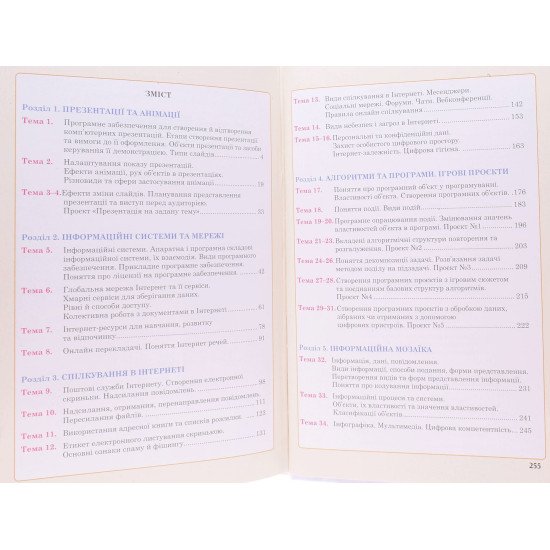 ЗМІСТ
Розділ 1. ПРЕЗЕНТАЦІЇ ТА АНІМАЦІЇ
Тема 1. Програмне забезпечення для створення й відтворення
комп'ютерних презентацій. Етапи створення презентації
та вимоги до її оформлення. Об'єкти презентації та засоби
керування її демонстрацією. Типи слайдів 4
Тема 2. Налаштування показу презентації.
Ефекти анімації, рух об'єктів в презентаціях.
Різновиди та сфери застосування анімації 19
Тема 3–4. Ефекти зміни слайдів. Планування представлення
презентації та виступ перед аудиторією.
Проєкт «Презентація на задану тему» 33
Розділ 2. ІНФОРМАЦІЙНІ СИСТЕМИ ТА МЕРЕЖІ
Тема 5. Інформаційні системи. Апаратна і програмна складові
інформаційних систем, їх взаємодія. Види програмного
забезпечення. Прикладне програмне забезпечення.
Поняття про ліцензії на програмне забезпечення 42
Тема 6. Глобальна мережа Інтернет та її сервіси.
Хмарні сервіси для зберігання даних.
Рівні й способи доступу.
Колективна робота з документами в Інтернеті 61
Тема 7. Інтернет-ресурси для навчання, розвитку
та відпочинку 78
Тема 8. Онлайн перекладачі. Поняття Інтернет речей 91
Розділ 3. СПІЛКУВАННЯ В ІНТЕРНЕТІ
Тема 9. Поштові служби Інтернету. Створення електронної
скриньки. Надсилання повідомлень 98
Тема 10. Надсилання, отримання, перенаправлення повідомлень.
Пересилання файлів 111
Тема 11. Використання адресної книги та списків розсилки 123
Тема 12. Етикет електронного листування скринькою.
Основні ознаки спаму й фішингу 131
Тема 13. Види спілкування в Інтернеті. Месенджери
Соціальні мережі. Форуми. Чати. Вебконференції.
Правила онлайн спілкування 142
Тема 14. Види небезпек і загроз в Інтернеті 153
Тема 15–16. Персональні та конфіденційні дані.
Захист особистого цифрового простору.
Інтернет-залежність. Цифрова гігієна 163
Розділ 4. АЛГОРИТМИ ТА ПРОГРАМИ. ІГРОВІ ПРОЄКТИ
Тема 17. Поняття про програмний об'єкт у програмуванні.
Властивості об'єкта. Створення програмних об'єктів 176
Тема 18. Поняття події. Види подій 183
Тема 19-20. Програмне опрацювання події. Змінювання значень
властивостей об'єкта в програмі. Проєкт №1 196
Тема 21-23. Вкладені алгоритмічні структури повторення та
розгалуження. Проєкт №2 203
Тема 24-26. Поняття декомпозиції задачі. Розв'язання задачі
методом поділу на підзадачі. Проєкт №3 209
Тема 27-28. Створення програмних проєктів з ігровим сюжетом
із поєднанням базових структур алгоритмів.
Проєкт №4 215
Тема 29–31. Створення програмних проєктів з обробкою даних,
зібраних чи отриманих з допомогою
цифрових пристроїв. Проєкт №5 222
Розділ 5. ІНФОРМАЦІЙНА МОЗАЇКА
Тема 32. Інформація, дані, повідомлення.
Види інформації, способи подання, форми представлення.
Перетворення видів та форм представлення інформації.
Поняття про кодування інформації 231
Тема 33. Інформаційні процеси та системи.
Об'єкти, їх властивості та значення властивостей.
Класифікації об'єктів 241
Тема 34. Інфографіка. Мультимедіа. Цифрова компетентність 245
255